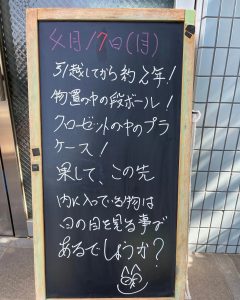 4月17日(月)
引越してから約2年!
物置の中の段ボール!
クローゼットの中のプラ
ケース!
果して、この先
内に入っている物は
日の目を見る事が
あるでしょうか?